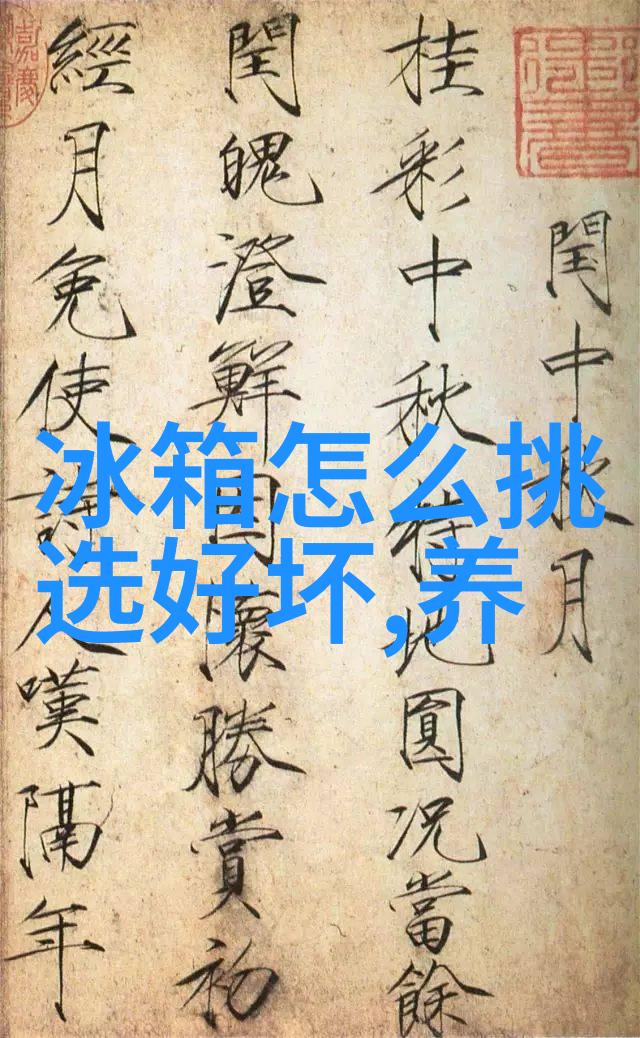 冰箱怎么挑
选好坏,养
閏中秋月
桂彩中秋特地圓況當餘
閏魄澄鮮因懷勝賞初
經月免使詩人嘆隔年